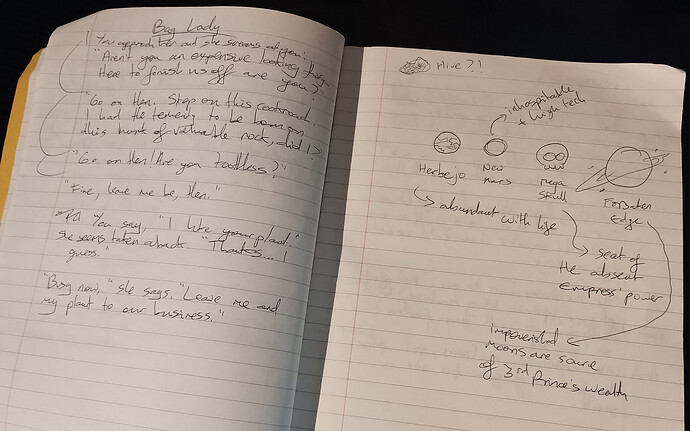 Bag Lady
You approach her and she screams at you:
"Aren't you an expensive looking thing.
Here to finish us off are you?
"Go on then. Step on this cockroach.
I had the temerity to be born on
this hunk of valuable rock, did I?
"Go on then! Are you toothless?"
"Fine, leave me be, then."
You say, "I like your plant."
She seems taken aback. "Thanks... I
guess."
"Busy now," she says. "Leave me and
my plant to our business."
Hive?!
inhospitable
+ high tech
Herbejo
New
Mars
Mega
Skull
Forbidden
Edge
abundant with life
seat of
the absent
empress' power
impoverished
moons are source
of 3rd Prince's wealth